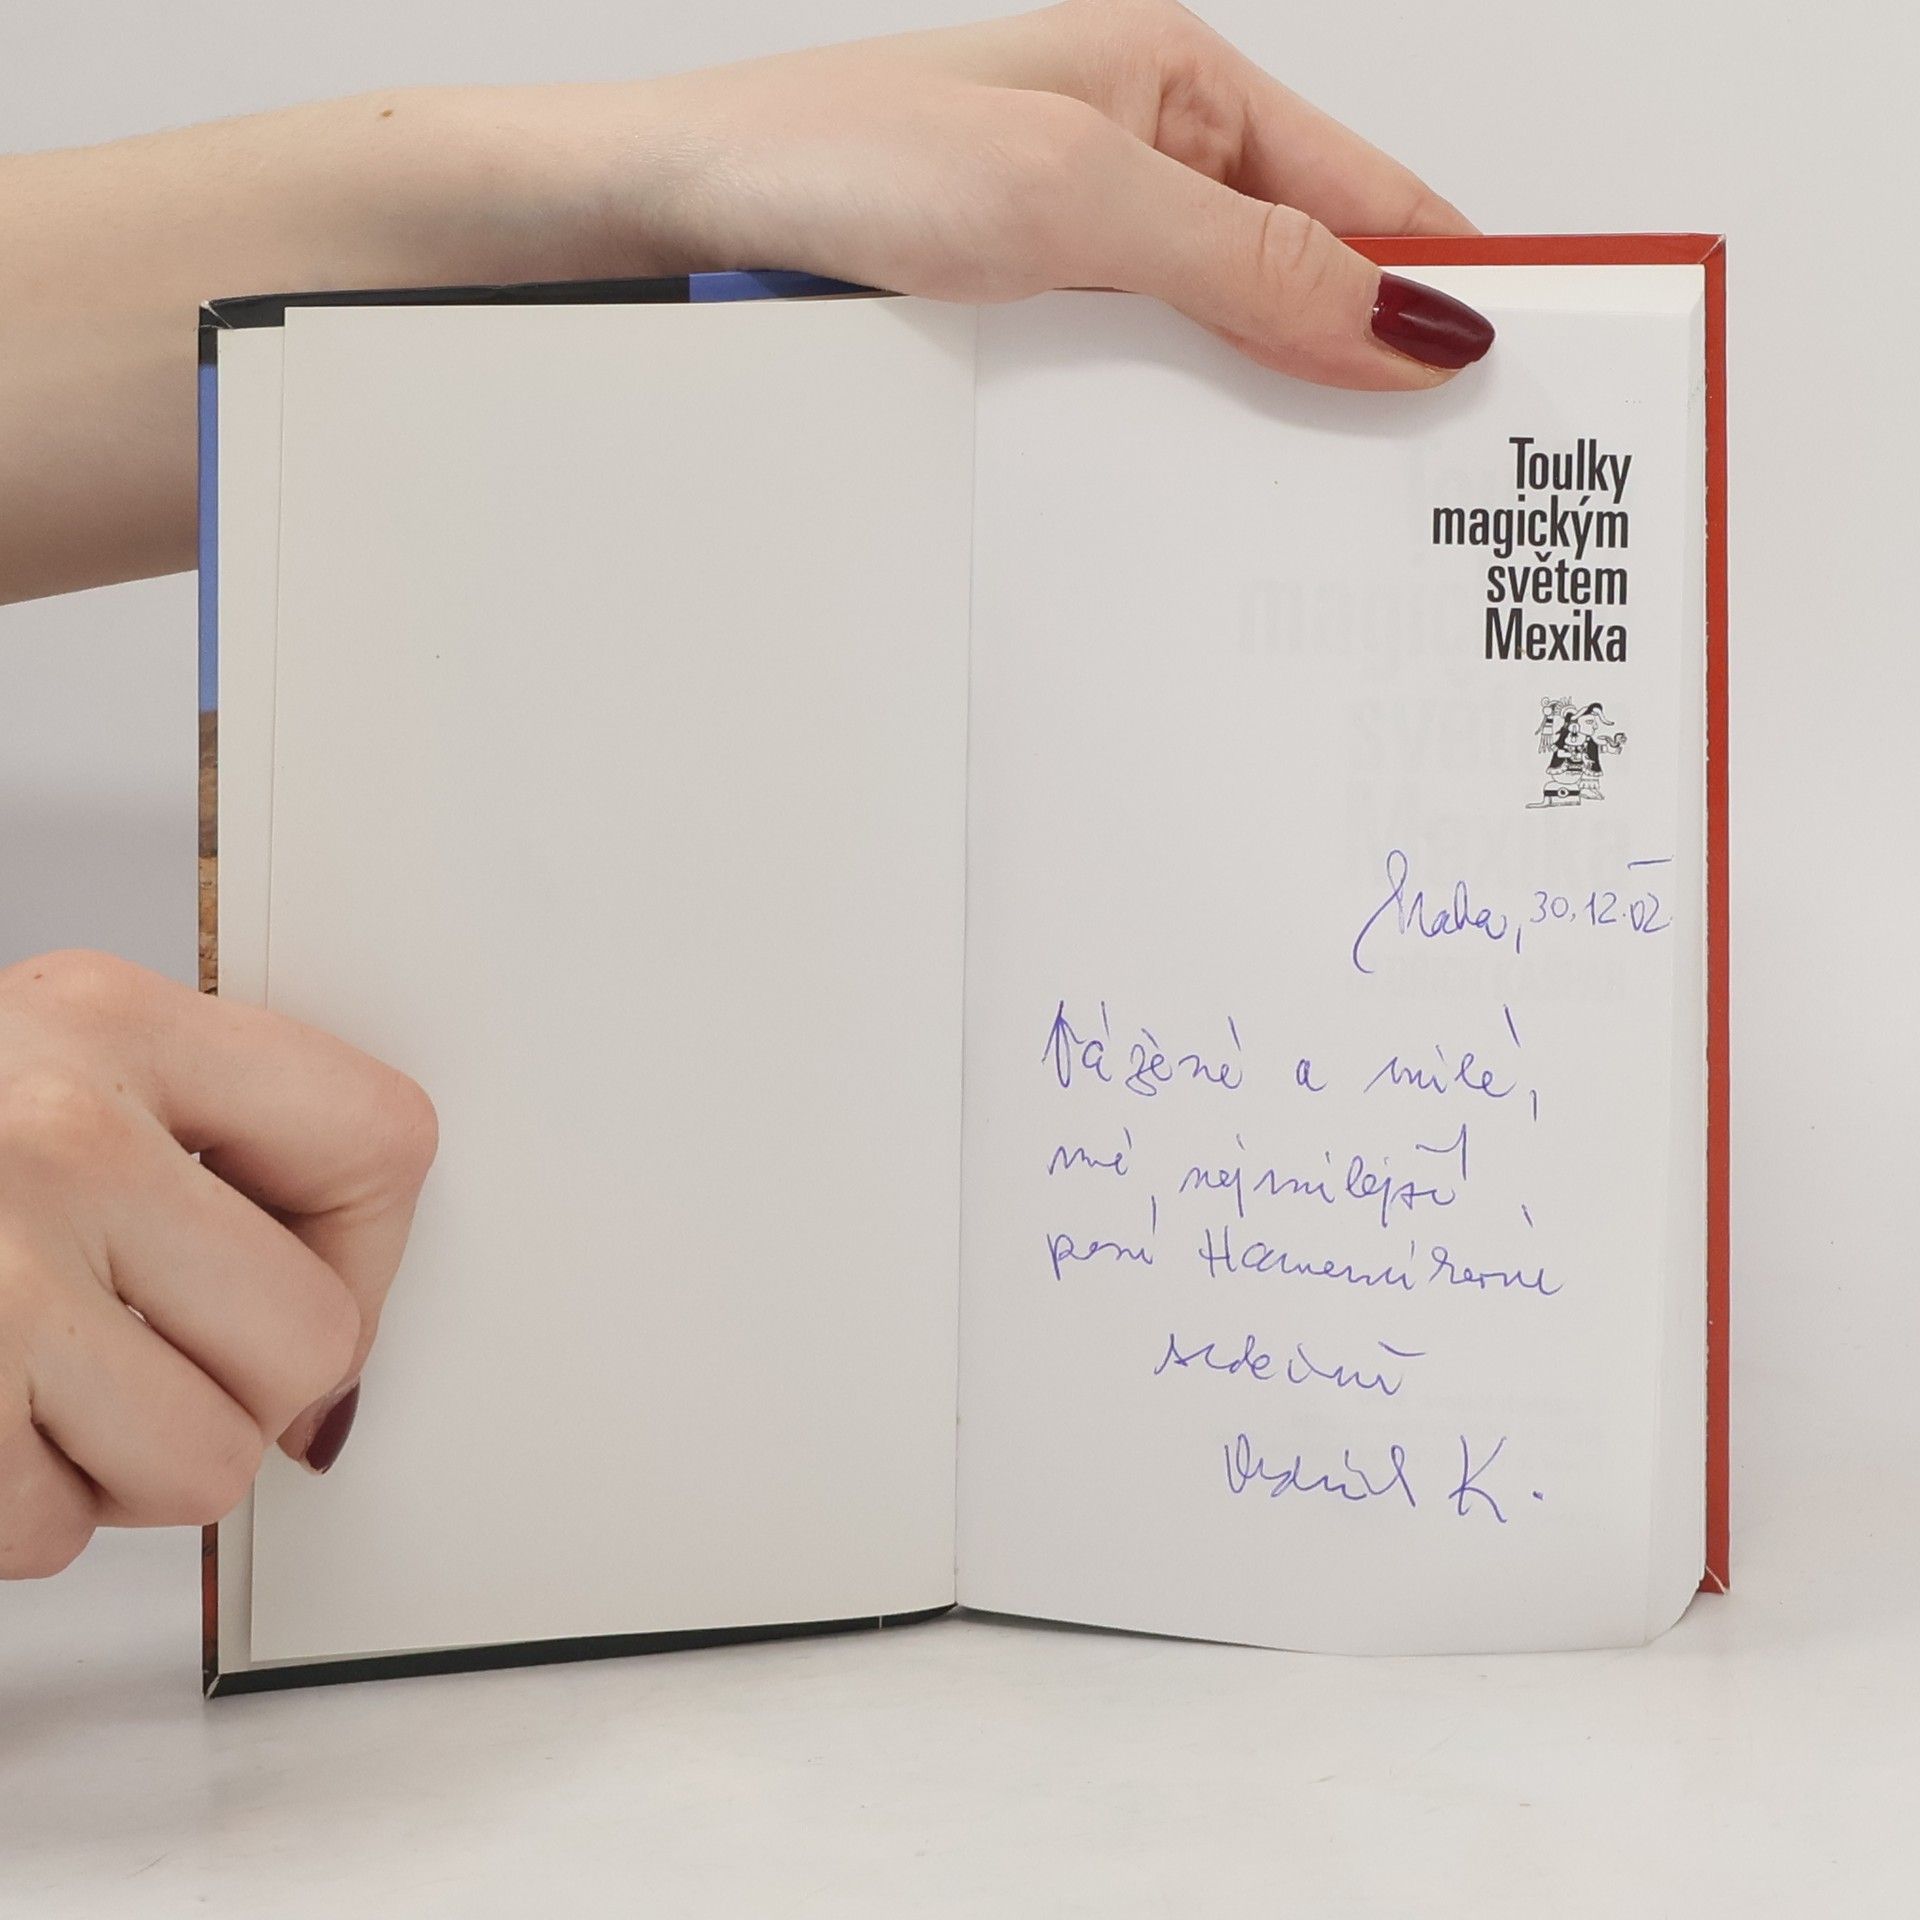 Toulky
magickým
světem
Mexika
Praha, 30.12.02
Vážené a milé,
mé nejmilejší
paní
srdečně
K.